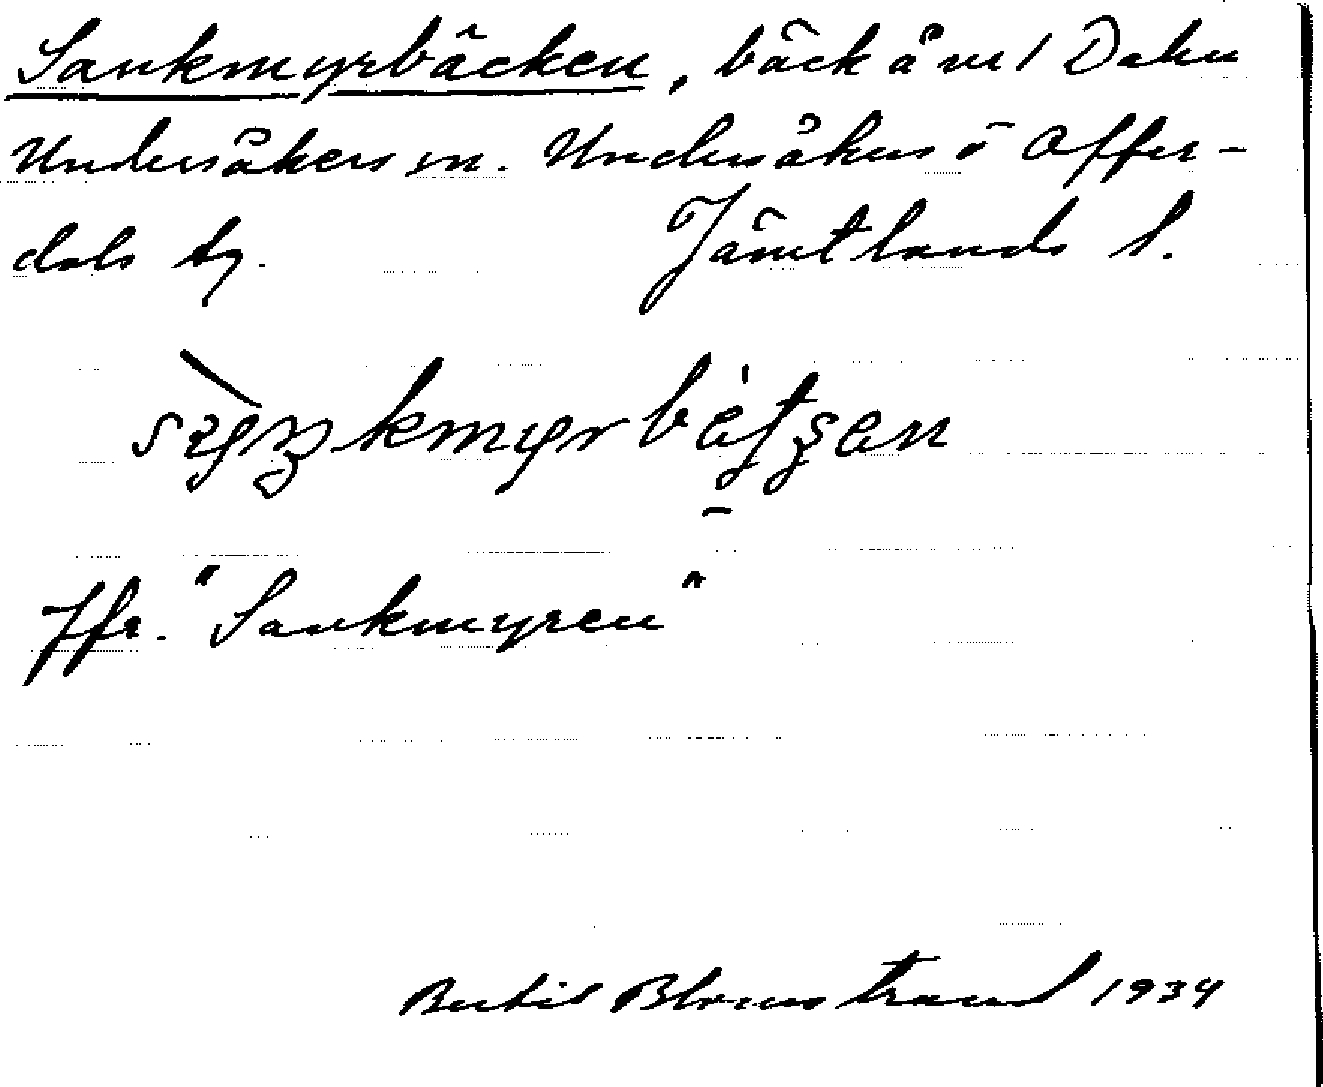 Sankmyrbäcken, bäck å vm/ Dalen
Undersåkers sn. Undersåkers o Offer-
dals tg. Jämtlands l.
Jfr. "Sankmyren"
Bertil Blomstrand 1934